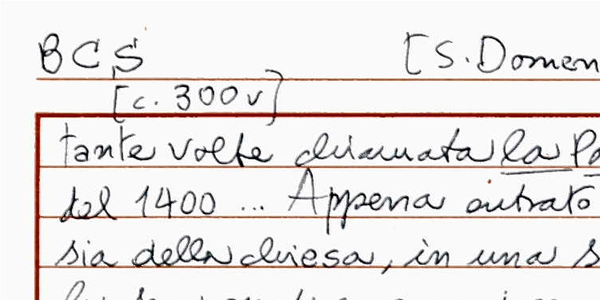 BCS [S. Domen
[c. 300v]
tante volte chiamata la Pa
del 1400 ... Appena entrato
sia della chiesa, in una s